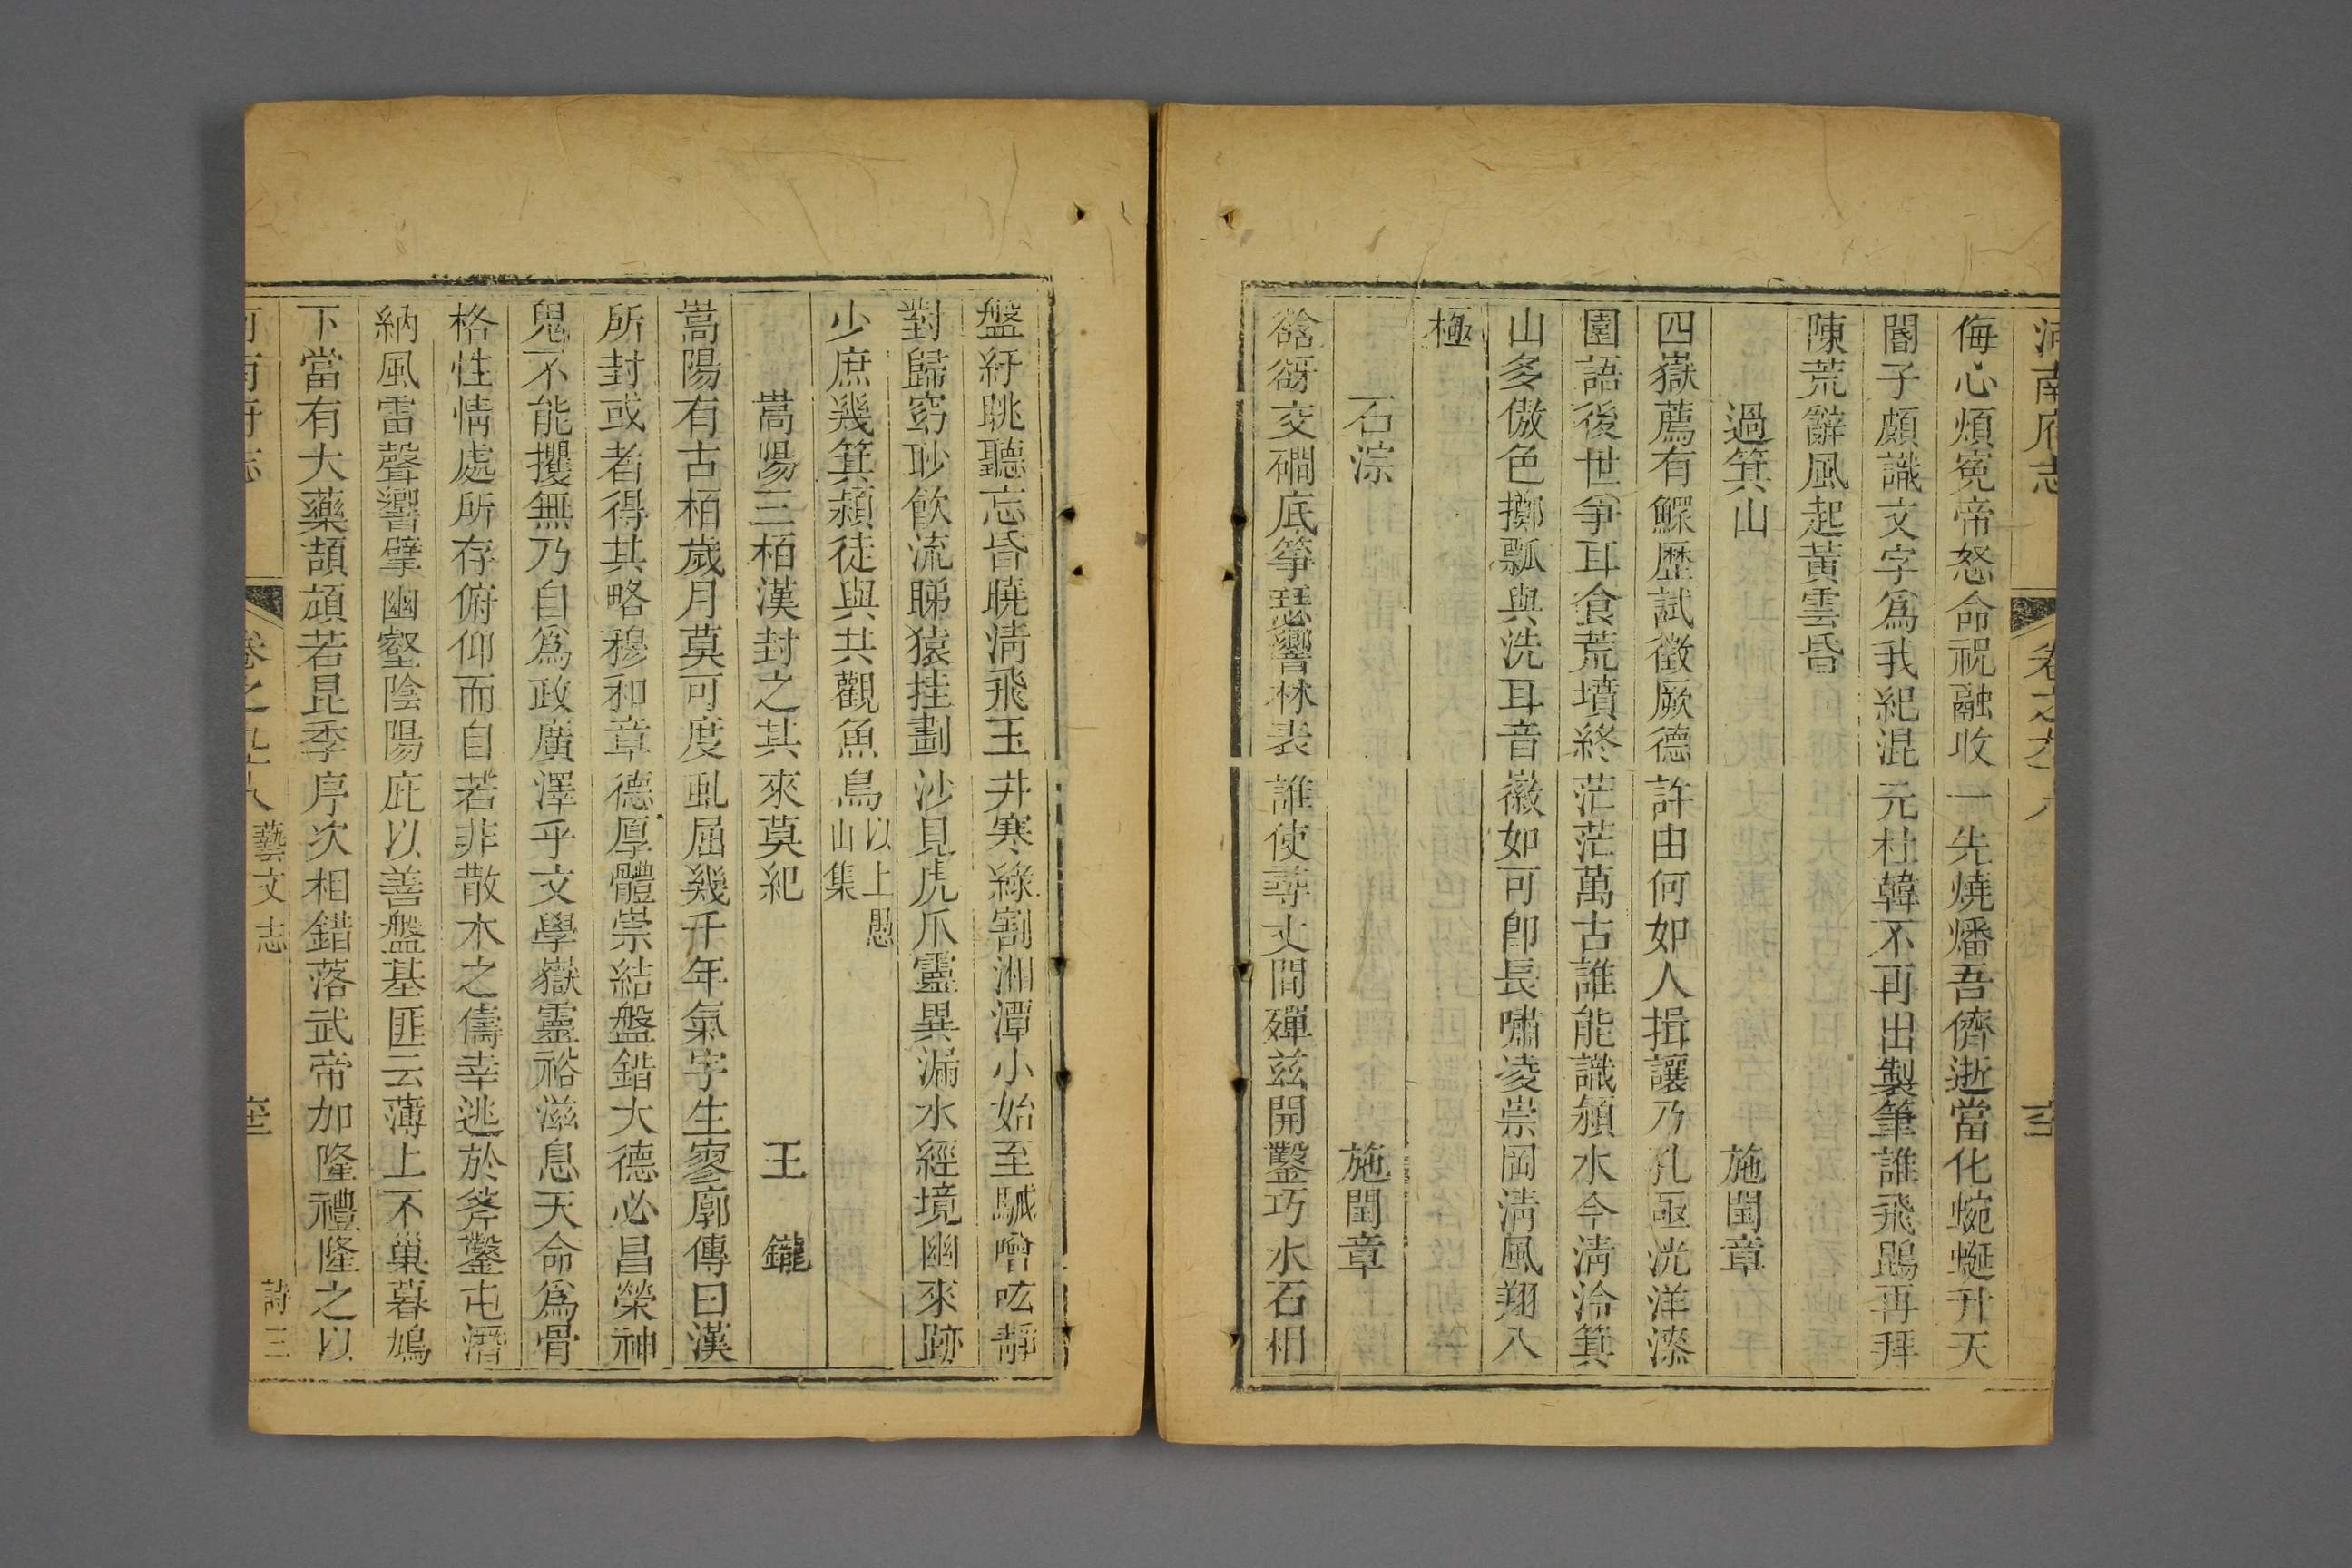 河南府志 卷之九 八
侮心煩寃帝怒命祝融收一先燒燔吾儕逝當化蜿蜒升天
閽子頗識文字爲我紀混元杜韓不再出製筆誰飛鵾再拜
陳荒辭風起黃雲昏
過箕山 施閏章
四嶽薦有鰥歴試徵厥德許由何如人揖讓乃孔亟洸洋漆
園語後世爭耳食荒墳終茫茫萬古誰能識潁水今淸泠箕
山多傲色擲瓢與洗耳音徽如可卽長嘯凌崇岡淸風翔八
極
石淙 施閏章
谽谺交磵底箏瑟響林表誰使尋丈間殫兹開鑿巧水石相
盤紆眺聽忘昏曉淸飛玉井寒綠割湘潭小始至駴噌吰靜
對歸窈眇飮流睇猿挂劃沙見虎爪靈異漏水經境幽來跡
少庶幾箕潁徒與共觀魚鳥以上愚山集
嵩陽三栢漢封之其來莫紀 王鑨
嵩陽有古栢歲月莫可度虬屈幾千年氣宇生寥廓傳曰漢
所封或者得其略穆和章德厚體崇結盤錯大德必昌榮神
鬼不能攖無乃自爲政廣澤乎文學嶽靈裕滋息天命爲骨
格性情處所存俯仰而自若非散木之儔幸逃於斧鑿屯潛
納風雷聲響擘幽壑陰陽庇以善盤基匪云薄上不巢暮鳩
下當有大藥頡頏若昆季序次相錯落武帝加隆禮隆之以
卷之九十八 藝文志 詩三